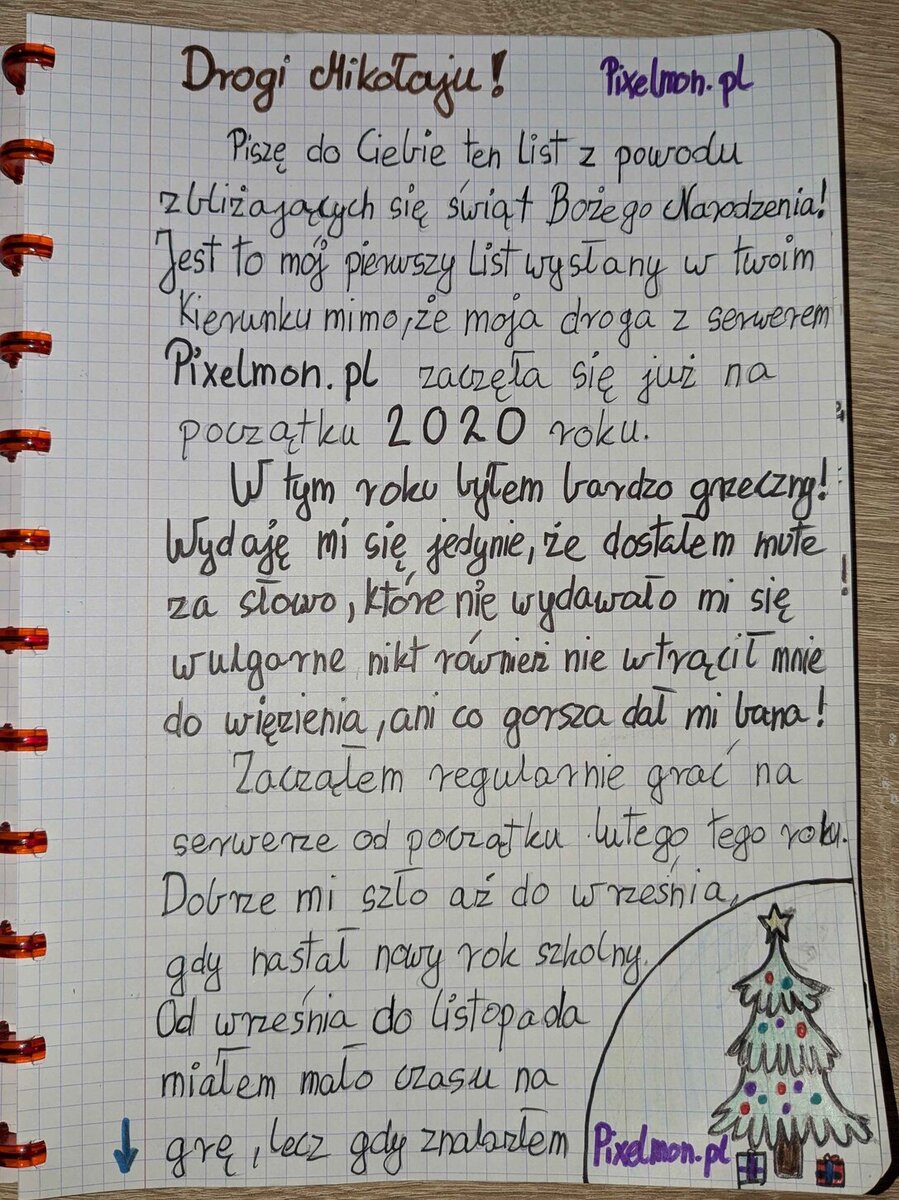 Drogi Mikołaju! Pixelmon.pl
Piszę do Ciebie ten list z powodu
zbliżających się świąt Bożego Narodzenia!
Jest to mój pierwszy list wysłany w twoim
kierunku mimo, że moja droga z serwerem
Pixelmon.pl zaczęła się już na
początku 2020 roku.
W tym roku byłem bardzo grzeczny!
Wydaję mi się jedynie, że dostałem mute
za słowo, które nie wydawało mi się
wulgarne nikt również nie wtrącił mnie
do więzienia, ani co gorsza dał mi bana!
Zacząłem regularnie grać na
serwerze od początku lutego tego roku.
Dobrze mi szło aż do września,
gdy nastał nowy rok szkolny.
Od września do listopada
miałem mało czasu na
grę, lecz gdy znalazłem
Pixelmon.pl